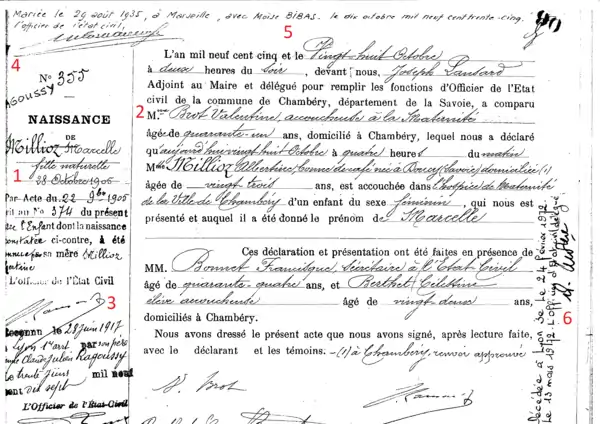 Mariée le 29 août 1935, à Marseille, avec Moïse BIBAS. le dix octobre mil neuf cent trente-cinq.
l'officier de l'état civil,
5
4
Nº 355
RAGOUSSY
NAISSANCE
DE
Millioz Marcelle
fille naturelle
1
28 Octobre 1905
Par Acte du 22 9bre 1905
Nº 374 du présent
l'Enfant dont la naissance
constatée ci-contre, à été
sa mère Millioz
L'Officier de l'État Civil
3
Reconnu le 28 juin 1917
à Lyon 1er arrt par son père
Claude Julien Ragoussy
Le trente juin mil neuf
cent dix sept
L'Officier de l'État-Civil
L'an mil neuf cent cinq et le Vingt-huit Octobre
à deux heures du soir, devant nous, Joseph
Adjoint au Maire et délégué pour remplir les fonctions d'Officier de l'Etat
civil de la commune de Chambéry, département de la Savoie, a comparu
2
Mme Brot Valentine, accoucheuse à la Maternité
âgée de quarante-un ans, domicilié à Chambéry, lequel nous a déclaré
qu'aujourd'hui vingt huit Octobre à quatre heures du matin
Melle Millioz Albertine, née à (Savoie) domiciliée (1)
âgée de vingt trois ans, est accouchée dans l'hospice de Maternité
de la Ville de Chambéry d'un enfant du sexe féminin, qui nous est
présenté et auquel il a été donné le prénom de Marcelle
Ces déclaration et présentation ont été faites en présence de
MM. Bonnet Francisque, Secrétaire à l'Etat Civil
âgé de quarante-quatre ans, et Berthet Célestine
élève accoucheuse âgé de vingt deux ans,
domiciliés à Chambéry.
Nous avons dressé le présent acte que nous avons signé, après lecture faite,
avec le déclarant et les témoins. -(1) à Chambéry, renvoi approuvé
V. Brot
Décédée à Lyon 3e Le 24 février 1972
Le 13 mars 1972. L'officier d'Etat civil délégué
6